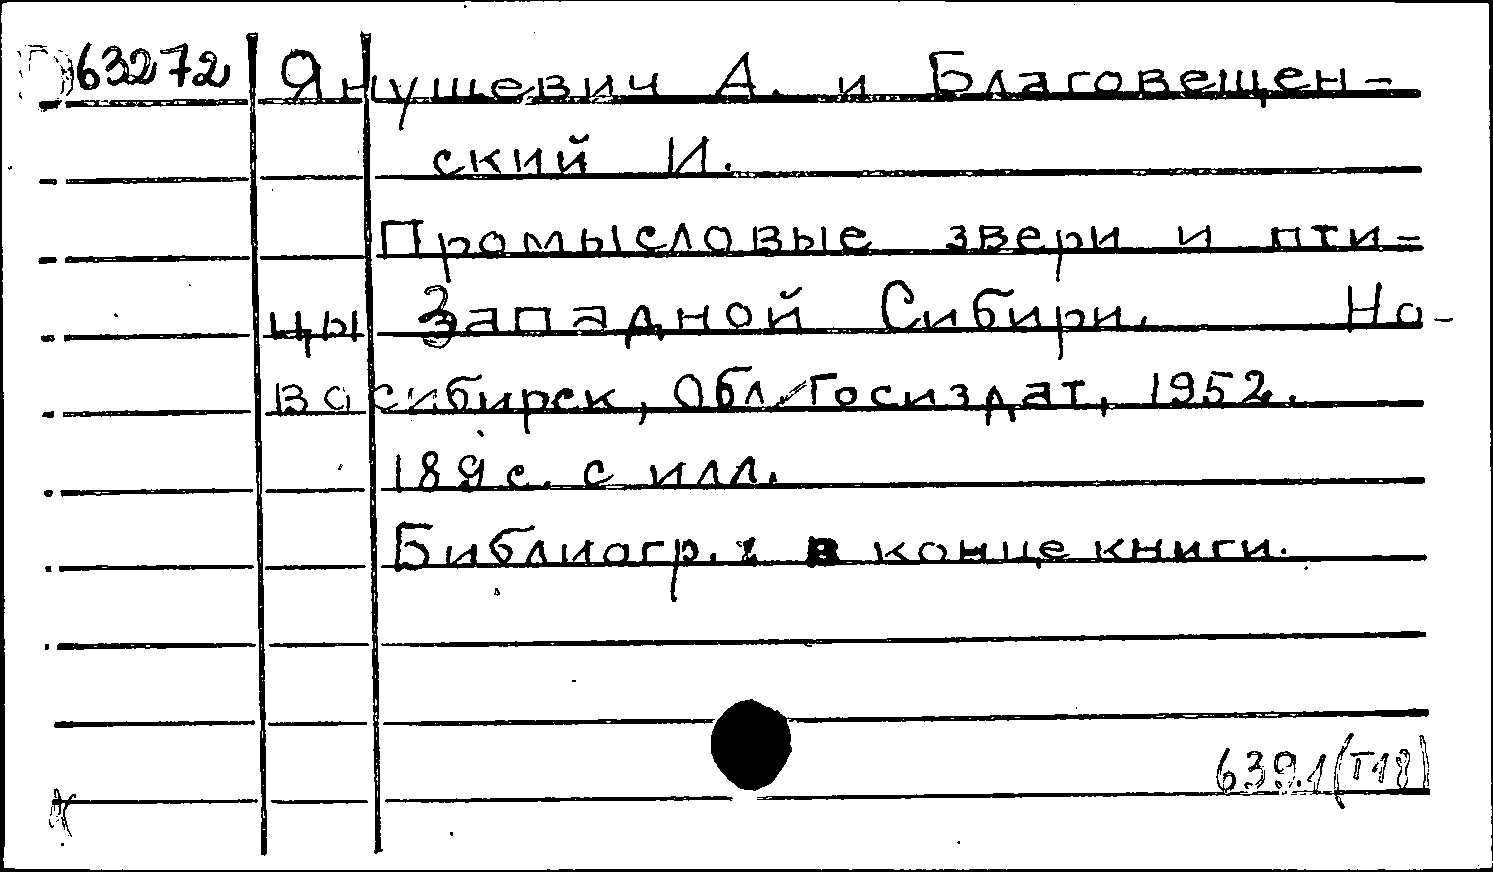 D63272 Янушевич А. и Благовещен-
ский И.
Промысловые звери и пти-
цы Западной Сибири. Но-
восибирск, Обл. Госиздат, 1952.
189 с. с илл.
Библиогр.: в конце книги.
639.1(Т18)